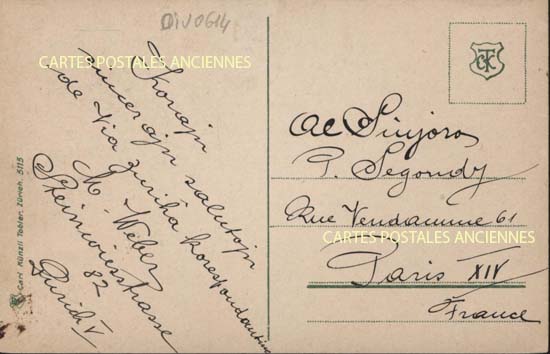 DIV0614
CARTES POSTALES ANCIENNES
Korajn
sincerajn salutojn
de Via zuriĥa korespondantino
M. Weber
Steinwiesstrasse
82
Zürich V
Carl Künzli Tobler, Zürich. 5115
CKT
Al Sinjoro
P. Segondy
Rue Vendamme 61
CARTES POSTALES ANCIENNES
Paris XIV
France